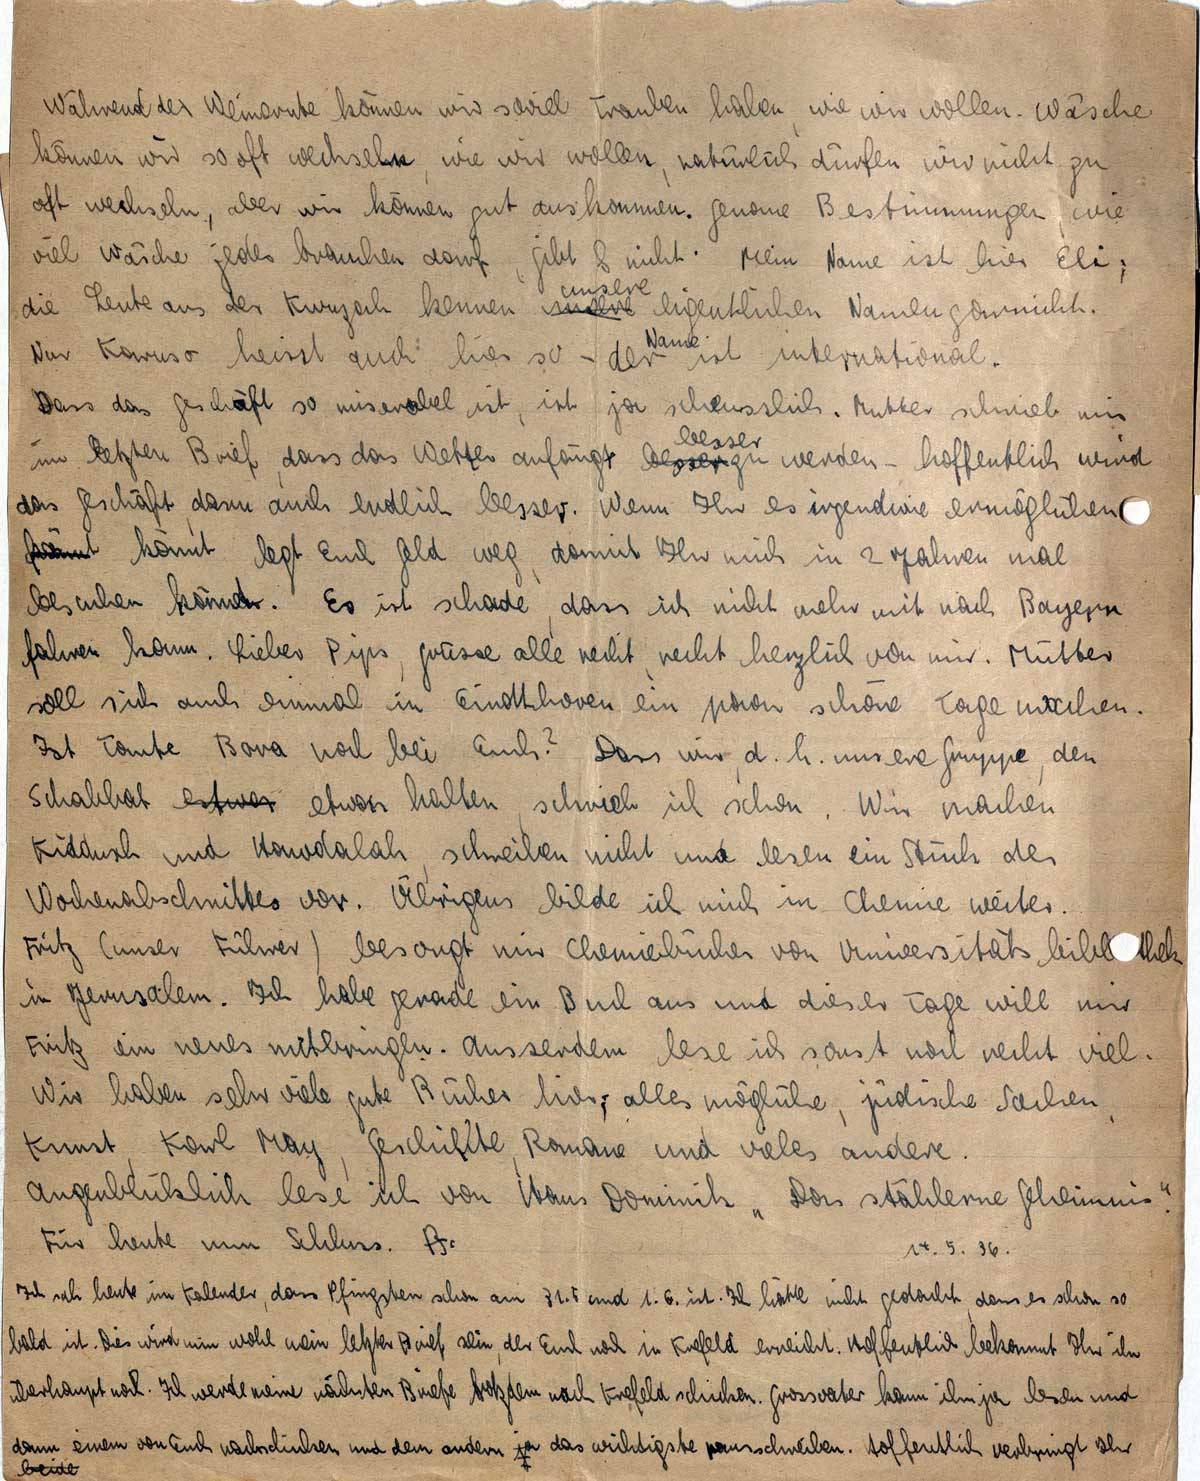 Während der Weinernte können wir soviel Trauben haben, wie wir wollen. Wäsche
können wir so oft wechseln, wie wir wollen, natürlich dürfen wir nicht zu
oft wechseln, aber wir können gut auskommen. Genaue Bestimmungen, wie
viel Wäsche jedes brauchen darf, gibt es nicht. Mein Name ist hier Eli;
die Leute aus der Kwuzah kennen unsere eigentlichen Namen garnicht.
Nur Karuso heisst auch hier so – der Name ist international.
Dass das Geschäft so miserabel ist, ist ja scheusslich. Mutter schrieb mir
im letzten Brief, dass das Wetter anfängt besser zu werden – hoffentlich wird
das Geschäft dann auch endlich besser. Wenn Ihr es irgendwie ermöglichen
könnt könnt legt Euch Geld weg, damit Ihr mich in 2 Jahren mal
besuchen könnt. Es ist schade, dass ich nicht mehr mit nach Bayern
fahren kann. Lieber Pips, grüsse alle recht, recht herzlich von mir. Mutter
soll sich auch einmal in Eindthoven ein paar schöne Tage machen.
Ist Tante Bora noch bei Euch? Dass wir, d. h. unsere Gruppe, den
Schabbat etwas etwas halten, schrieb ich schon. Wir machen
Kiddusch und Hawdalah, schreiben nicht und lesen ein Stück des
Wochenabschnittes vor. Übrigens bilde ich mich in Chemie weiter.
Fritz (unser Führer) besorgt mir Chemiebücher von Universitätsbibliothek
in Jerusalem. Ich habe gerade ein Buch aus und dieser Tage will mir
Fritz ein neues mitbringen. Ausserdem lese ich sonst noch recht viel.
Wir haben sehr viele gute Bücher hier; alles mögliche, jüdische Sachen,
Kunst, Karl May, Geschichte, Romane und vieles andere.
Augenblicklich lese ich von Hans Dominik „Das stählerne Geheimnis“.
Für heute nun Schluss. 14. 5. 36.
Ich sah heute im Kalender, dass Pfingsten schon am 31.5 und 1.6. ist. Ich hätte nicht gedacht, dass es schon so
bald ist. Dies wird nun wohl mein letzter Brief sein, der Euch noch in Krefeld erreicht. Hoffentlich bekommt Ihr ihn
überhaupt noch. Ich werde meine nächsten Briefe trotzdem nach Krefeld schicken. Grossvater kann ihn ja lesen und
dann einem von Euch nachschicken und dem andern ja das wichtigste rausschreiben. Hoffentlich verbringt Ihr
beide